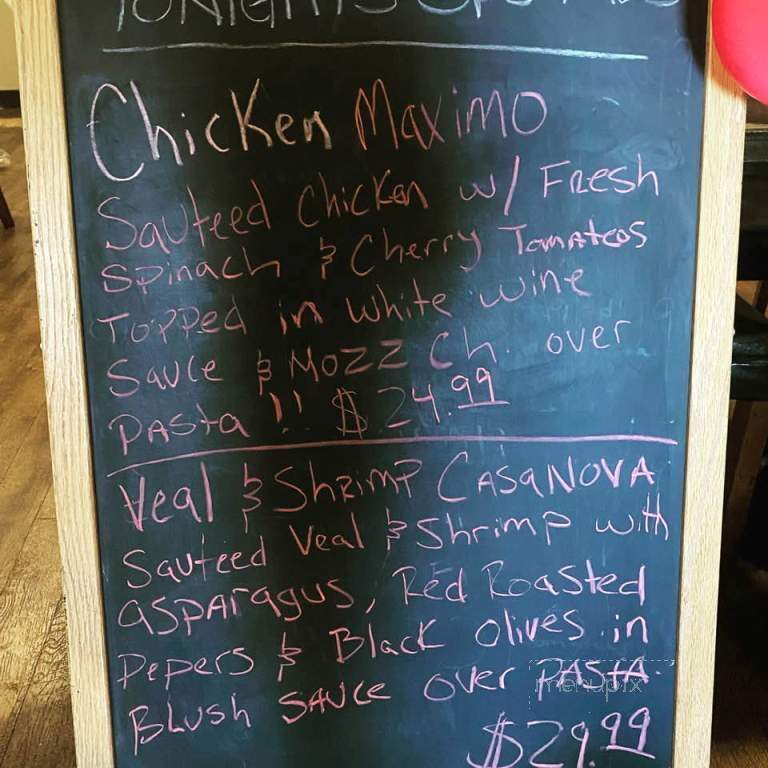 TONIGHTS SPECIALS
Chicken Maximo
Sauteed Chicken w/ Fresh
Spinach & Cherry Tomatoes
Topped in white wine
Sauce & Mozz Ch. over
Pasta !! $24.99
Veal & Shrimp CASANOVA
Sauteed Veal & Shrimp with
asparagus, Red Roasted
Pepers & Black olives in
Blush SAUCE over PASTA.
$29.99
menupix